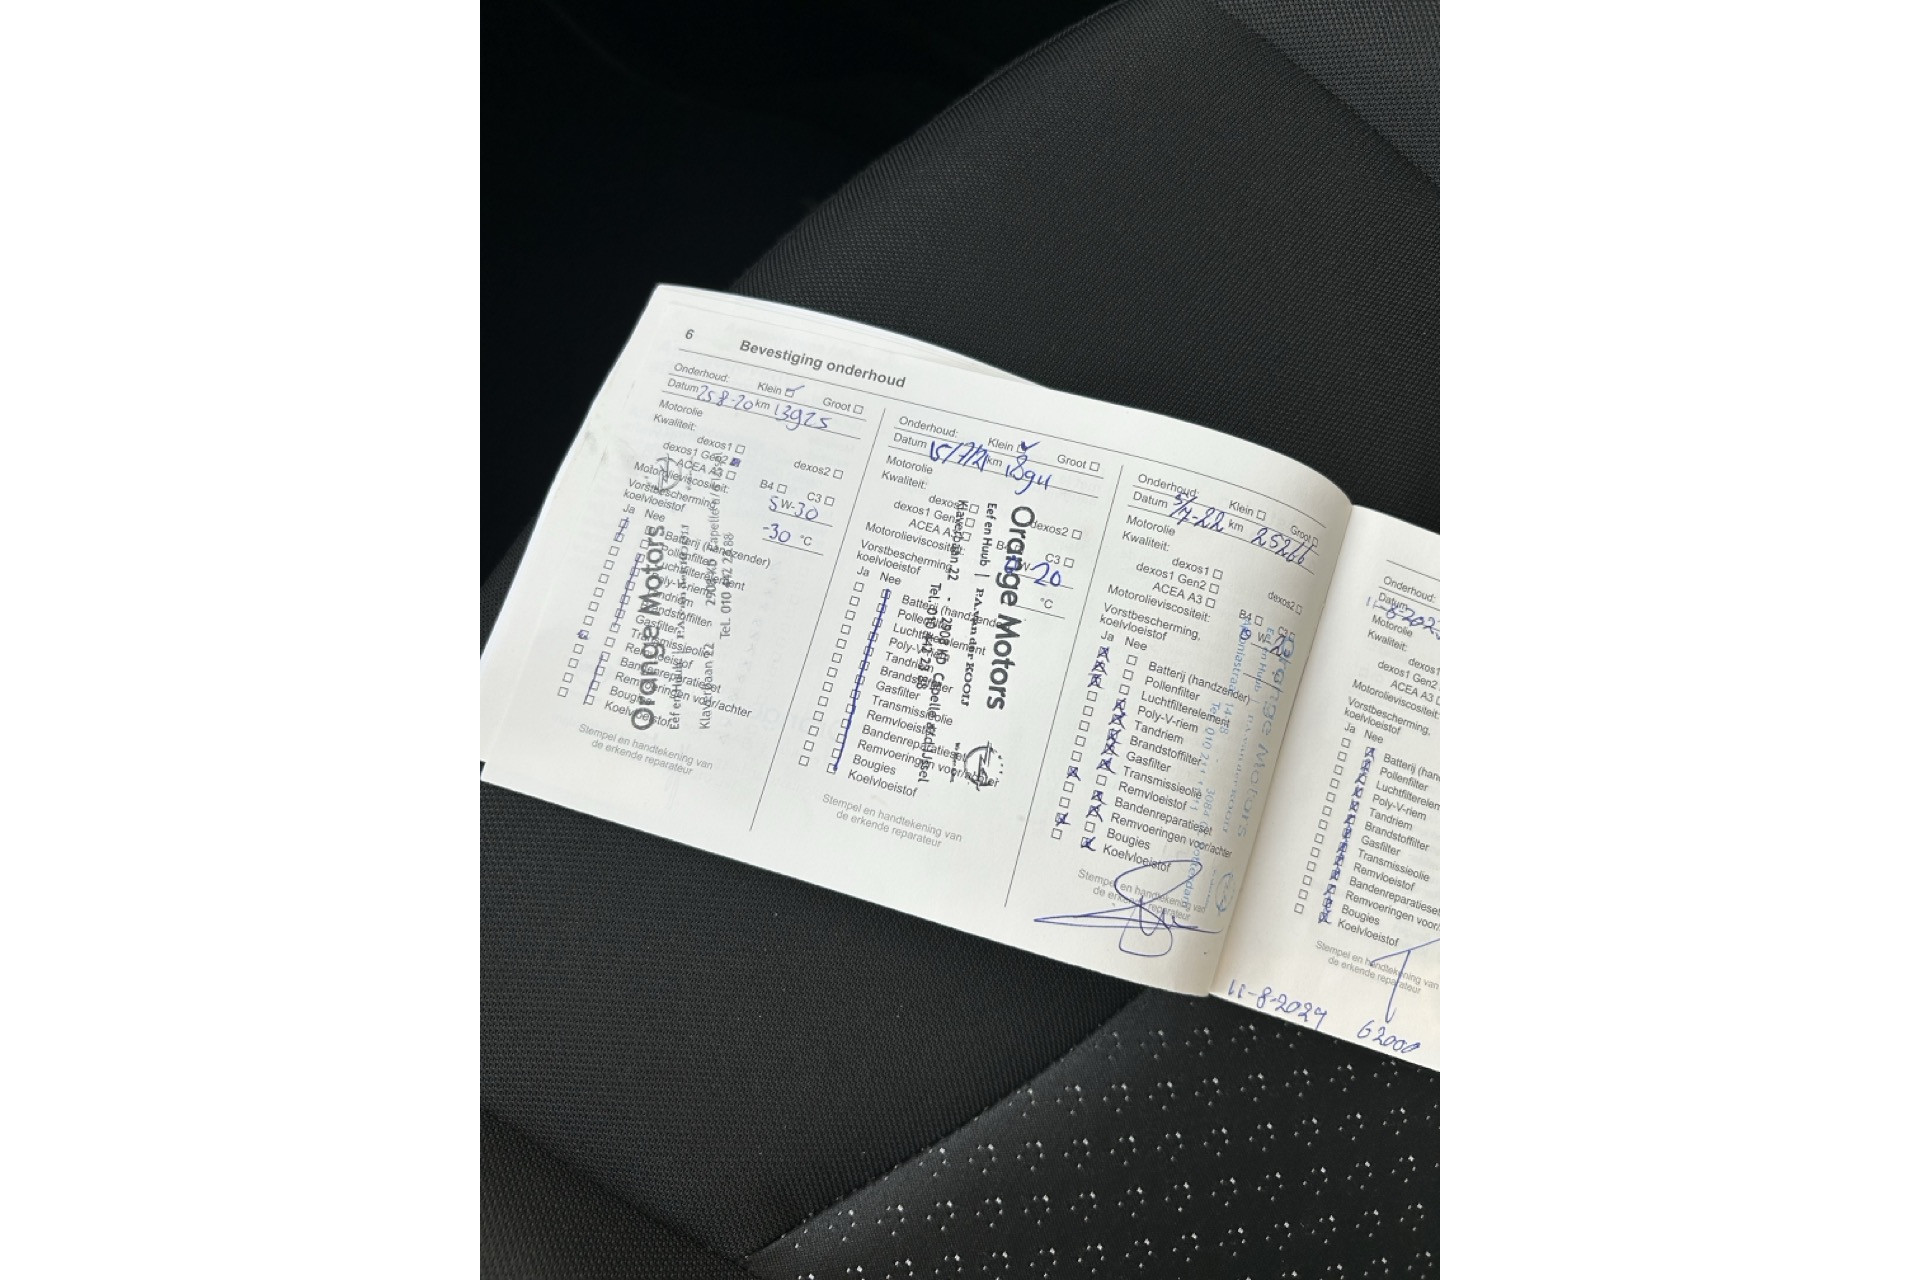 6 Bevestiging onderhoud
Onderhoud: Klein Groot
Datum 25 8-20 km 13925
Motorolie
Kwaliteit:
dexos1
dexos1 Gen2 dexos2
ACEA A3 B4 C3
Motorolieviscositeit: 5W-30
Vorstbescherming
koelvloeistof -30 °C
Ja Nee
Batterij (handzender)
Pollenfilter
Luchtfilterelement
Poly-V-riem
Tandriem
Brandstoffilter
Gasfilter
Transmissieolie
Remvloeistof
Bandenreparatieset
Remvoeringen voor/achter
Bougies
Koelvloeistof
Stempel en handtekening van
de erkende reparateur
Orange Motors
Eef en Huub
Klaverbaan 22 2908 KD Capelle a/d IJssel
Tel. 010 442 28 88
Onderhoud: Klein Groot
Datum km
Motorolie
Kwaliteit:
dexos1
dexos1 Gen2 dexos2
ACEA A3 B4 C3
Motorolieviscositeit: W-20
Vorstbescherming
koelvloeistof °C
Ja Nee
Batterij (handzender)
Pollenfilter
Luchtfilterelement
Poly-V-riem
Tandriem
Brandstoffilter
Gasfilter
Transmissieolie
Remvloeistof
Bandenreparatieset
Remvoeringen voor/achter
Bougies
Koelvloeistof
Stempel en handtekening van
de erkende reparateur
Orange Motors
Eef en Huub | P.A. van der KOOIJ
Klaverbaan 22 - 2908 KD Capelle a/d IJssel
Tel. 010 442 28 88
Onderhoud: Klein Groot
Datum 5/7-22 km 25266
Motorolie
Kwaliteit:
dexos1
dexos1 Gen2 dexos2
ACEA A3 B4 C3
Motorolieviscositeit: W-20
Vorstbescherming,
koelvloeistof
Ja Nee
Batterij (handzender)
Pollenfilter
Luchtfilterelement
Poly-V-riem
Tandriem
Brandstoffilter
Gasfilter
Transmissieolie
Remvloeistof
Bandenreparatieset
Remvoeringen voor/achter
Bougies
Koelvloeistof
Stempel en handtekening van
de erkende reparateur
Orange Motors
Onderhoud:
Datum
Motorolie
Kwaliteit:
dexos1
dexos1 Gen2
ACEA A3
Motorolieviscositeit:
Vorstbescherming,
koelvloeistof
Ja Nee
Batterij (han
Pollenfilter
Luchtfilterelem
Poly-V-riem
Tandriem
Brandstoffilter
Gasfilter
Transmissieolie
Remvloeistof
Bandenreparatieset
Remvoeringen voor/
Bougies
Koelvloeistof
Stempel en handtekening van
de erkende reparateur
11-8-2024 62000